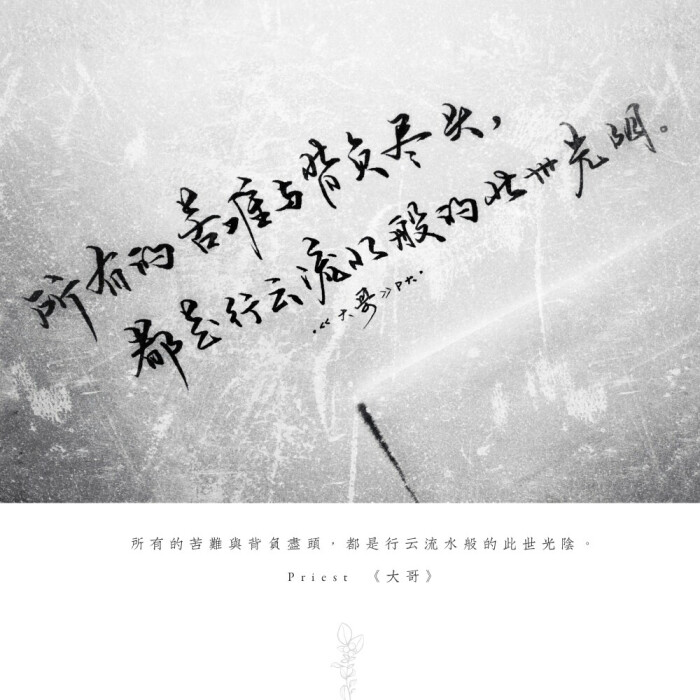 所有的苦难与背负尽头，
都是行云流水般的此世光明。
·《大哥》P大·
所有的苦難與背負盡頭，都是行云流水般的此世光陰。
Priest 《大哥》